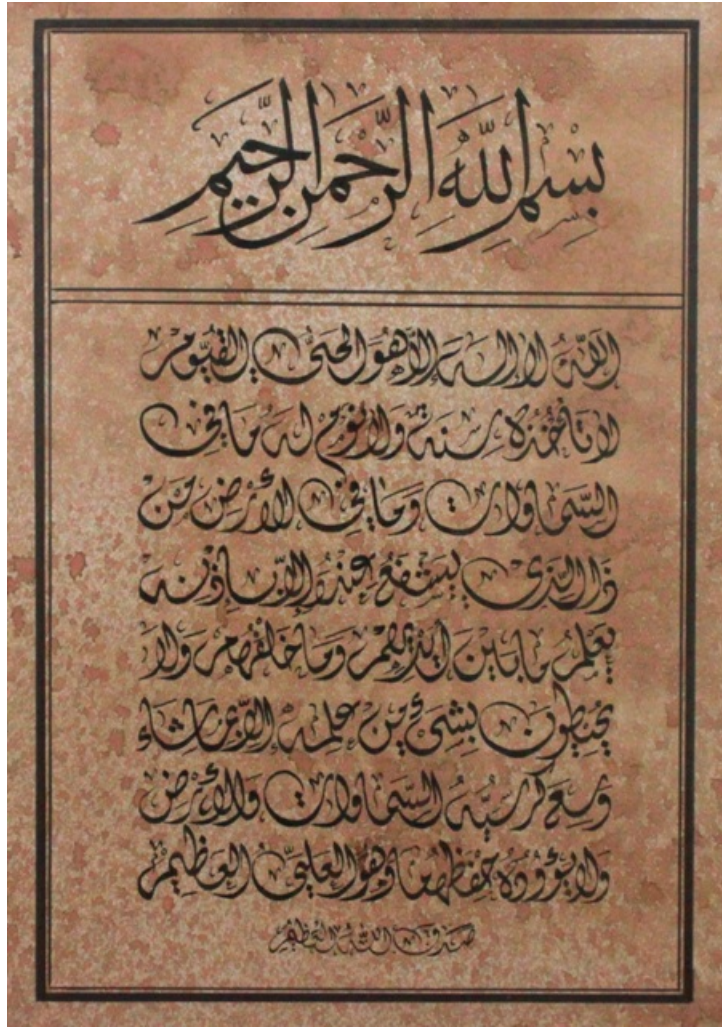 بِسْمِ اللَّهِ الرَّحْمَنِ الرَّحِيمِ
اللَّهُ لا إِلَهَ إِلَّا هُوَ الحَيُّ القَيُّومُ
لا تَأْخُذُهُ سِنَةٌ وَلا نَوْمٌ لَهُ مَا فِي
السَّمَاوَاتِ وَمَا فِي الأَرْضِ مَنْ
ذَا الَّذِي يَشْفَعُ عِنْدَهُ إِلَّا بِإِذْنِهِ
يَعْلَمُ مَا بَيْنَ أَيْدِيهِمْ وَمَا خَلْفَهُمْ وَلا
يُحِيطُونَ بِشَيْءٍ مِنْ عِلْمِهِ إِلَّا بِمَا شَاءَ
وَسِعَ كُرْسِيُّهُ السَّمَاوَاتِ وَالأَرْضَ
وَلا يَؤُودُهُ حِفْظُهُمَا وَهُوَ العَلِيُّ العَظِيمُ
صدق الله العظيم